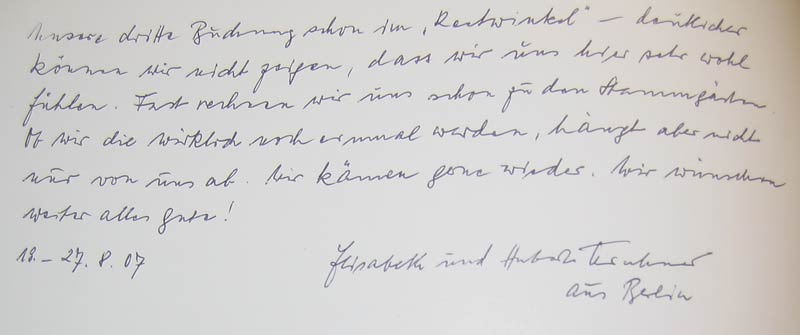 Unsere dritte Buchung schon im „Reetwinkel" – deutlicher
können wir nicht zeigen, dass wir uns hier sehr wohl
fühlen. Fast rechnen wir uns schon zu den Stammgästen
Ob wir die wirklich noch einmal werden, hängt aber nicht
nur von uns ab. Wir kämen gerne wieder. Wir wünschen
weiter alles Gute!
18.– 27. 8. 07
Elisabeth und Hubert
aus Berlin